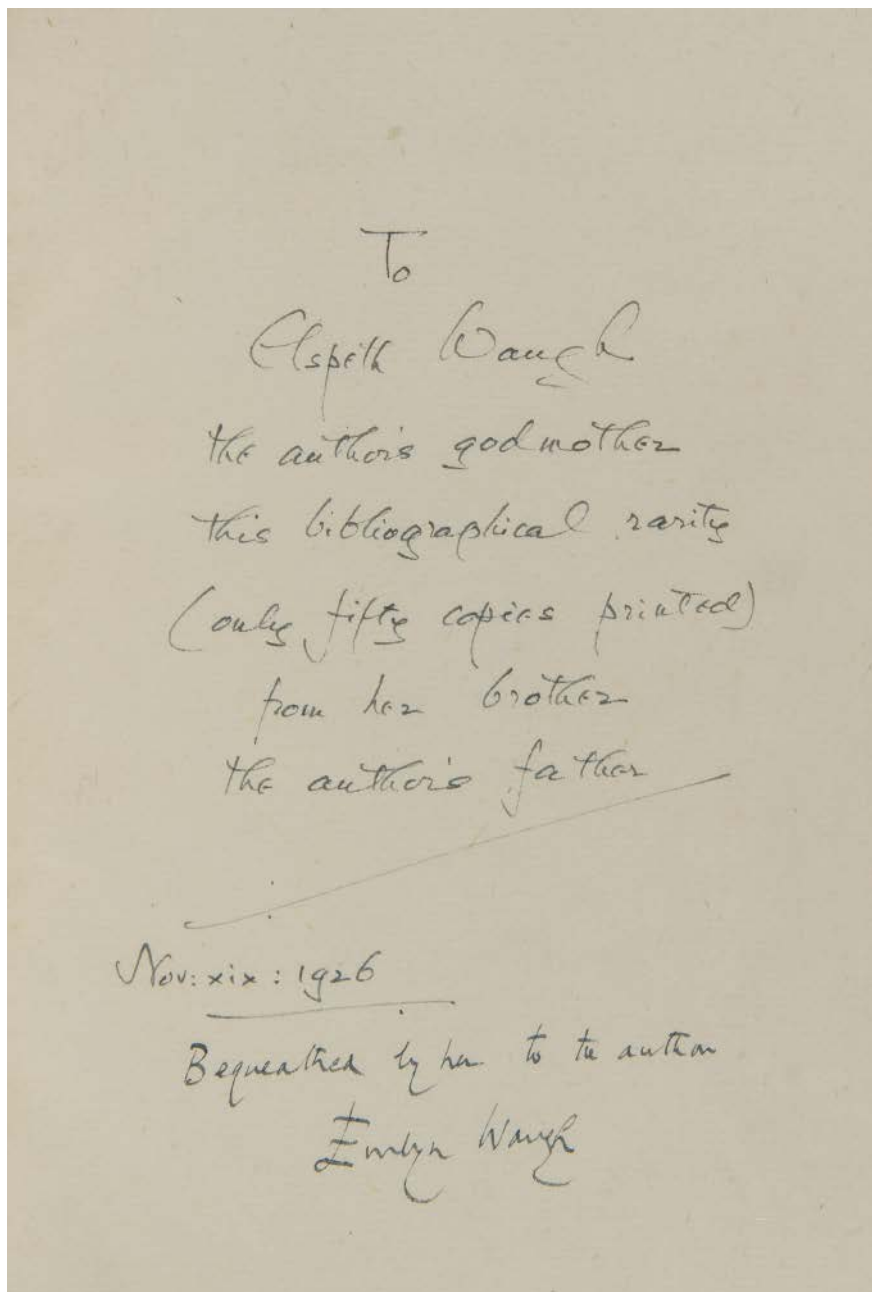 To
Elspeth Waugh
the author's godmother
this bibliographical rarity
(only fifty copies printed)
from her brother
the author's father
Nov: xix: 1926
Bequeathed by her to the author
Evelyn Waugh